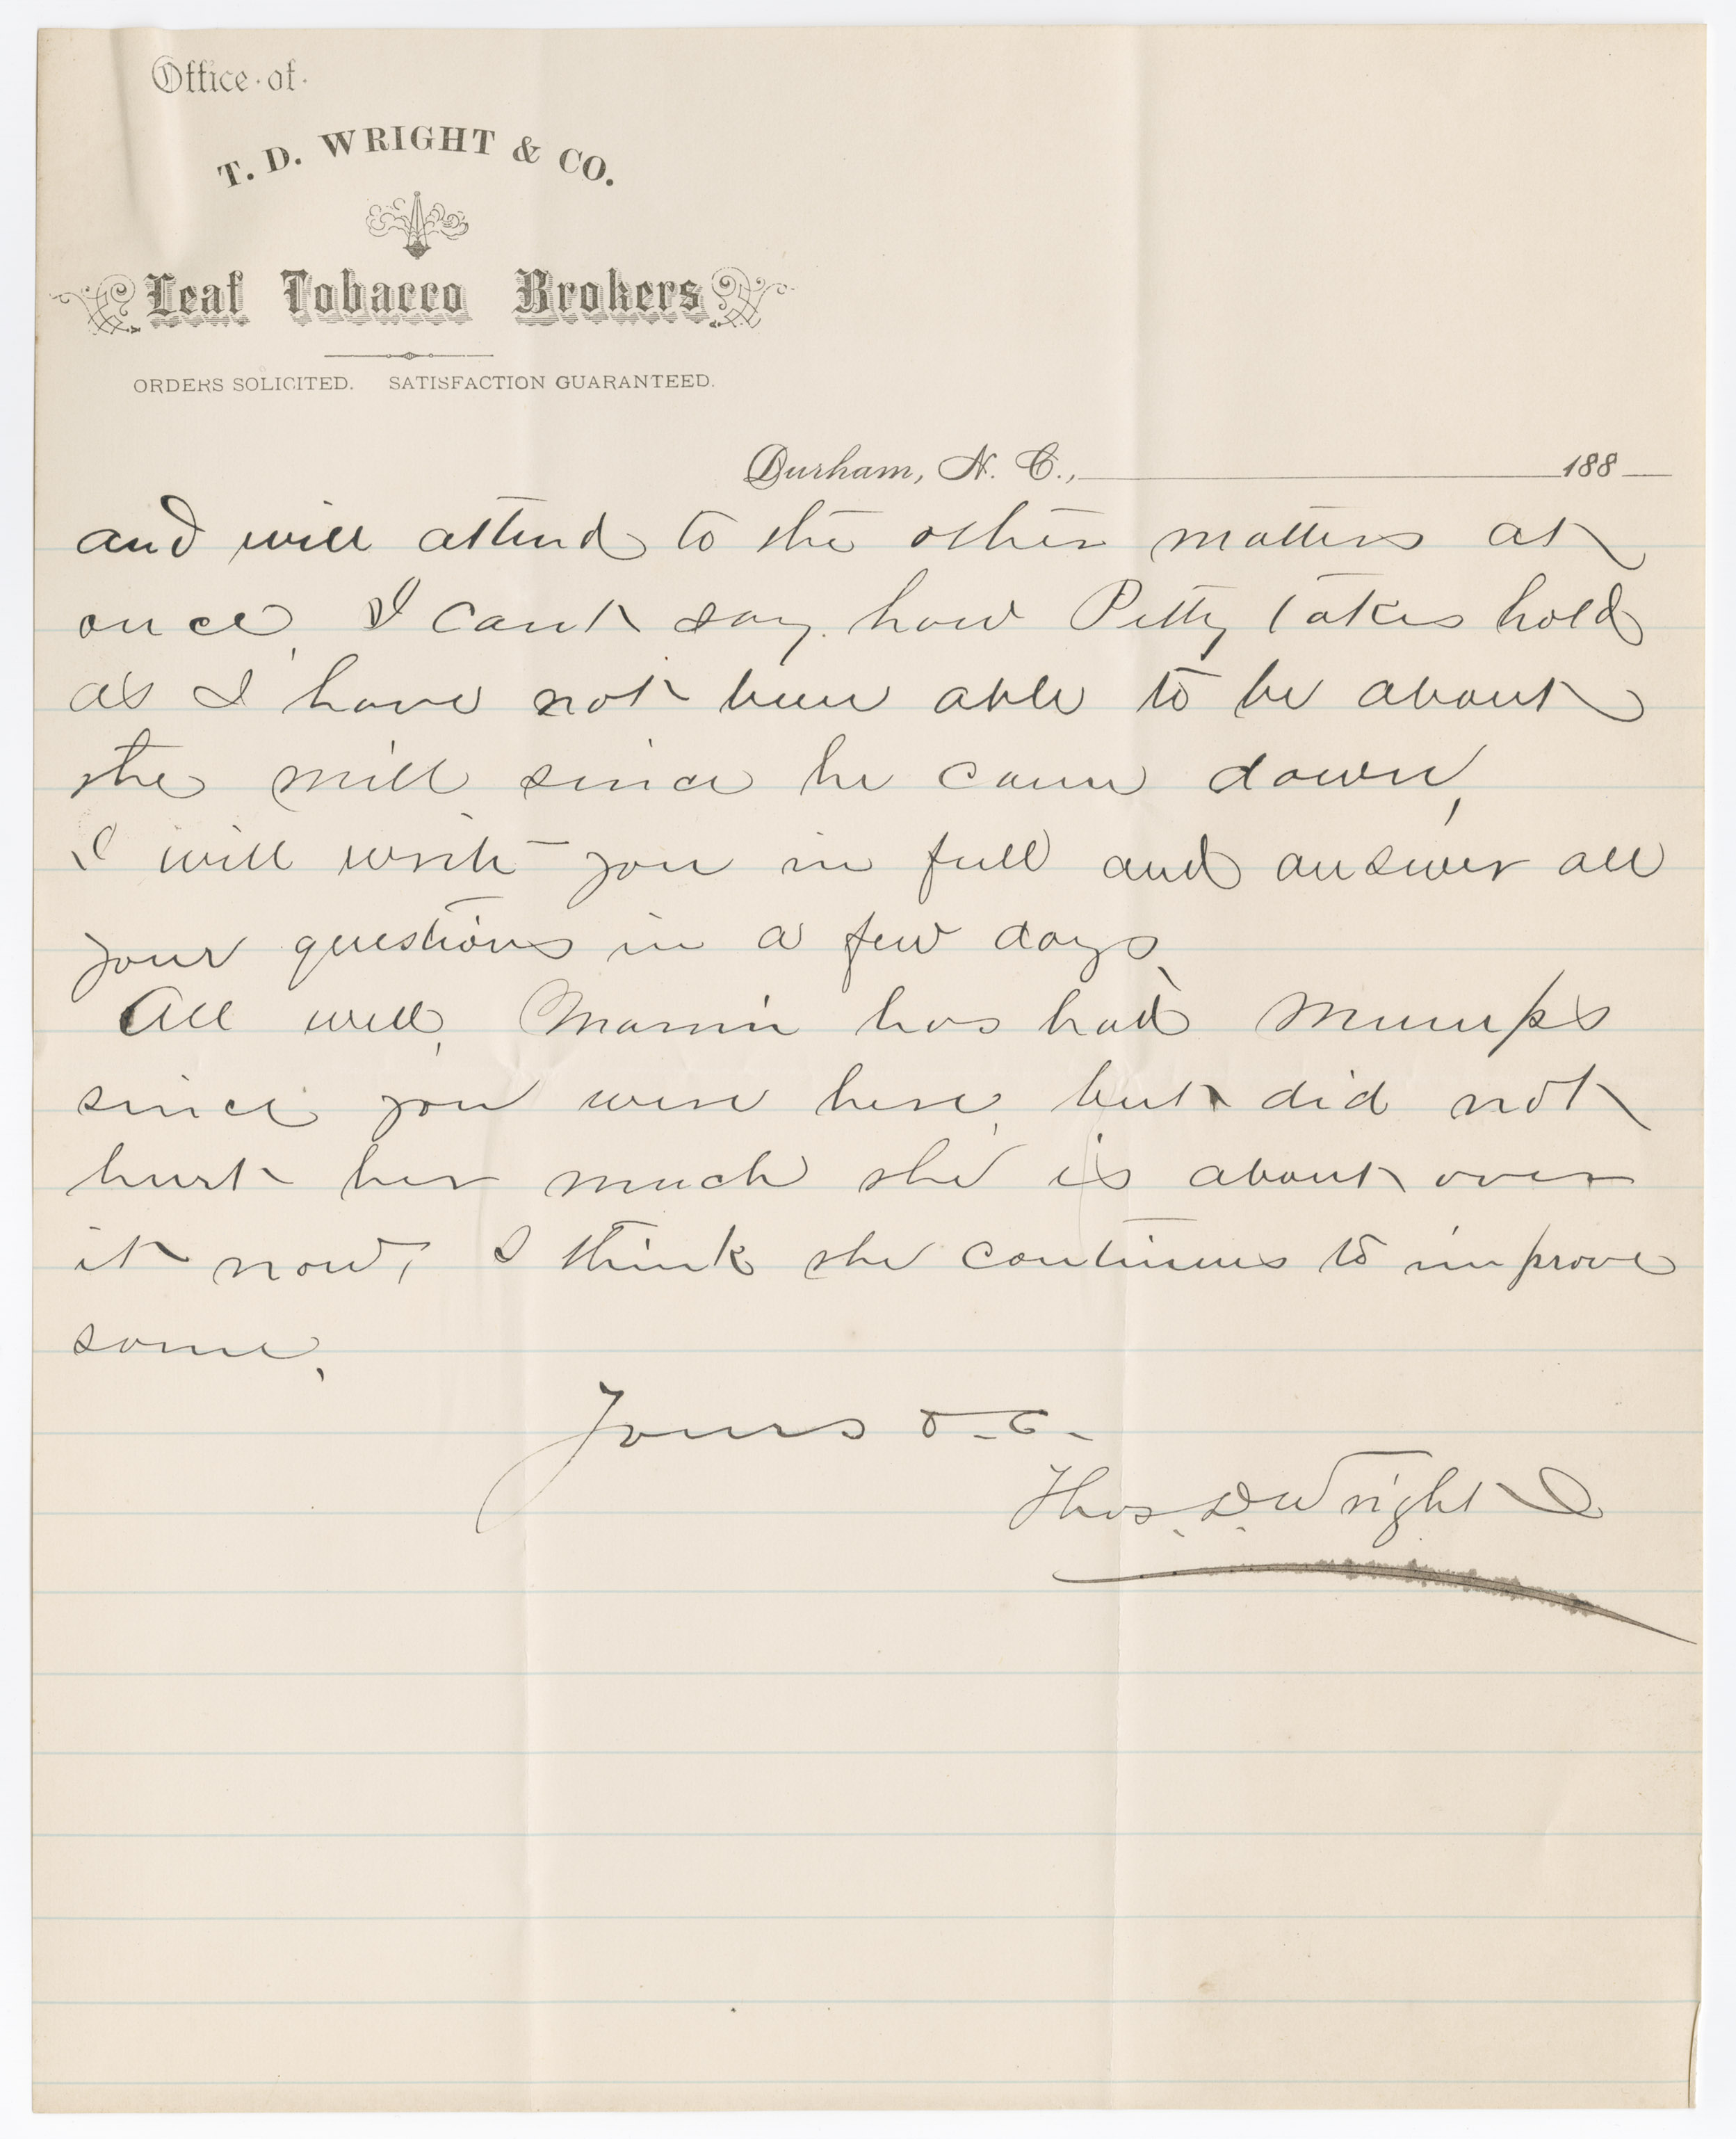 Office of
T. D. WRIGHT & CO.
Leaf Tobacco Brokers
ORDERS SOLICITED. SATISFACTION GUARANTEED.
Durham, N. C., 188
and will attend to the other matters at
once, I cant say how Petty takes hold
as I have not been able to be about
the mill since he came down,
I will write you in full and answer all
your questions in a few days,
All well, Mamie has had Mumps
since you were here, but did not
hurt her much she is about over
it now, I think she continues to improve
some,
Yours
Thos. D. Wright